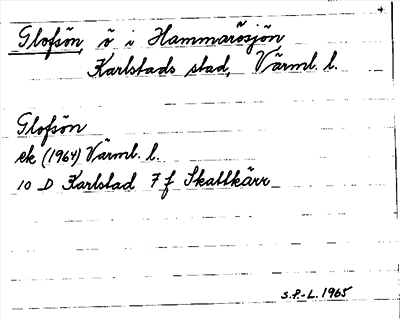 Glofsön, ö i Hammarösjön
Karlstads stad, Värml. l.
Glofsön
ek (1964) Värml. l.
10 D Karlstad 7 f Skattkärr
S.P.-L. 1965